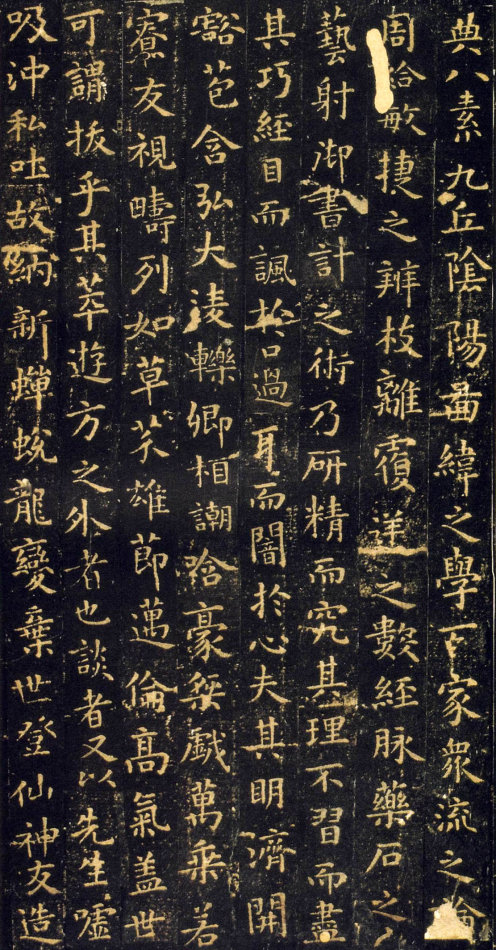 典八素九丘陰陽啚緯之學百家衆流之論
周給敏捷之辨枝離覆逆之數經脉藥石之
藝射御書計之術乃研精而究其理不習而盡
其巧經目而諷於口過耳而闇於心夫其明濟開
豁苞含弘大淩轢卿相謿哈豪桀戲萬乘若
寮友視疇列如草芥雄節邁倫高氣盖世
可謂拔乎其萃遊方之外者也談者又以先生噓
吸沖和吐故納新蟬蛻龍變棄世登仙神友造